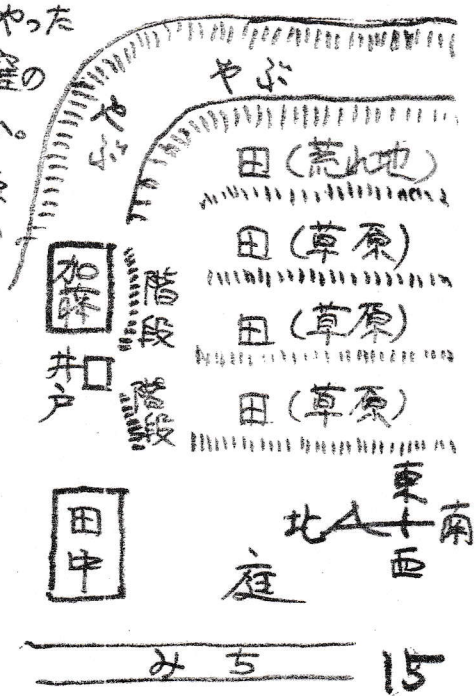 やった
窪の
へ。
やぶ
やぶ
田(荒れ地)
田(草原)
田(草原)
田(草原)
加藤
階段
井戸
階段
田中
庭
東
北
南
西
みち
15